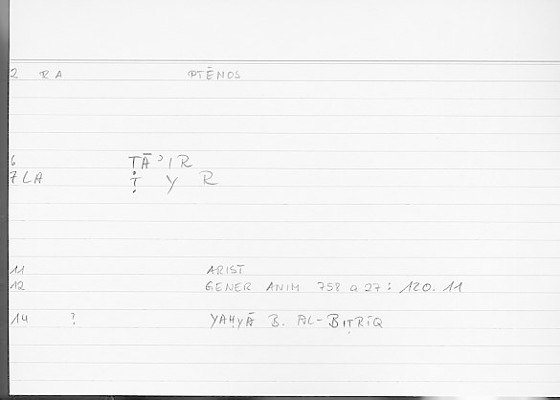 2 RA PTĒNOS
6 ṬĀʾIR
7 LA Ṭ Y R
11 ARIST
12 GENER ANIM 758 a 27 : 120.11
14 ? YAḤYĀ B. AL-BIṬRĪQ